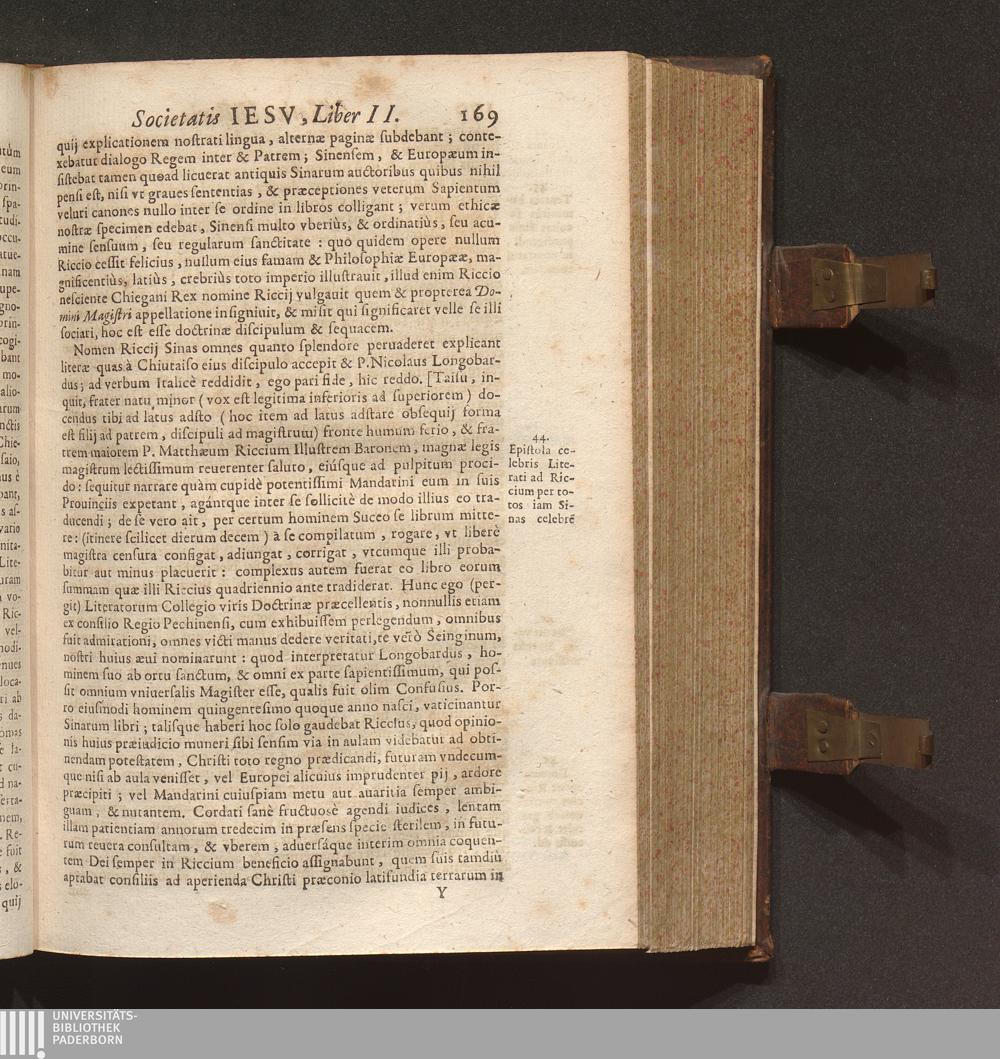 Societatis IESV, Liber II. 169
quij explicationem nostrati lingua, alternæ paginæ subdebant; conte-
xebatut dialogo Regem inter & Patrem; Sinensem, & Europæum in-
sistebat tamen quoad licuerat antiquis Sinarum auctoribus quibus nihil
pensi est, nisi vt graues sententias, & præceptiones veterum Sapientum
veluti canones nullo inter se ordine in libros colligant; verum ethicæ
nostræ specimen edebat, Sinensi multo vberiùs, & ordinatiùs, seu acu-
mine sensuum, seu regularum sanctitate: quo quidem opere nullum
Riccio cessit felicius, nullum eius famam & Philosophiæ Europææ, ma-
gnificentiùs, latiùs, crebriùs toto imperio illustrauit, illud enim Riccio
nesciente Chiegani Rex nomine Riccij vulgauit quem & propterea Do-
mini Magistri appellatione insigniuit, & misit qui significaret velle se illi
sociari, hoc est esse doctrinæ discipulum & sequacem.
Nomen Riccij Sinas omnes quanto splendore peruaderet explicant
literæ quas à Chiutaiso eius discipulo accepit & P. Nicolaus Longobar-
dus; ad verbum Italicè reddidit, ego pari fide, hic reddo. [Taisu, in-
quit, frater natu minor (vox est legitima inferioris ad superiorem) do-
cendus tibi ad latus adsto (hoc item ad latus adstare obsequij forma
est filij ad patrem, discipuli ad magistrum) fronte humum ferio, & fra-
trem maiorem P. Matthæum Riccium Illustrem Baronem, magnæ legis
magistrum lectissimum reuerenter saluto, eiúsque ad pulpitum proci-
do: sequitur narrare quàm cupidè potentissimi Mandarini eum in suis
Prouinciis expetant, agántque inter se sollicitè de modo illius eo tra-
ducendi; de se vero ait, per certum hominem Suceo se librum mitte-
re: (itinere scilicet dierum decem) à se compilatum, rogare, vt liberè
magistra censura configat, adiungat, corrigat, vtcumque illi proba-
bitur aut minus placuerit: complexus autem fuerat eo libro eorum
summam quæ illi Riccius quadriennio ante tradiderat. Hunc ego (per-
git) Literatorum Collegio viris Doctrinæ præcellentis, nonnullis etiam
ex consilio Regio Pechinensi, cum exhibuissem perlegendum, omnibus
fuit admirationi, omnes victi manus dedere veritati, te verò Seinginum,
nostri huius æui nominarunt: quod interpretatur Longobardus, ho-
minem suo ab ortu sanctum, & omni ex parte sapientissimum, qui pos-
sit omnium vniuersalis Magister esse, qualis fuit olim Confusius. Por-
ro eiusmodi hominem quingentesimo quoque anno nasci, vaticinantur
Sinarum libri; talisque haberi hoc solo gaudebat Riccius, quod opinio-
nis huius præiudicio muneri sibi sensim via in aulam videbatut ad obti-
nendam potestatem, Christi toto regno prædicandi, futuram vndecum-
que nisi ab aula venisset, vel Europei alicuius imprudenter pij, ardore
præcipiti; vel Mandarini cuiuspiam metu aut auaritia semper ambi-
guam, & nutantem. Cordati sanè fructuosè agendi iudices, lentam
illam patientiam annorum tredecim in præsens specie sterilem, in futu-
rum reuera consultam, & vberem, aduersáque interim omnia coquen-
tem Dei semper in Riccium beneficio assignabunt, quem suis tamdiù
aptabat consiliis ad aperienda Christi præconio latifundia terrarum in
Y
44.
Epistola ce-
lebris Lite-
rati ad Ric-
cium per to-
tos iam Si-
nas celebrẽ
UNIVERSITÄTS-
BIBLIOTHEK
PADERBORN